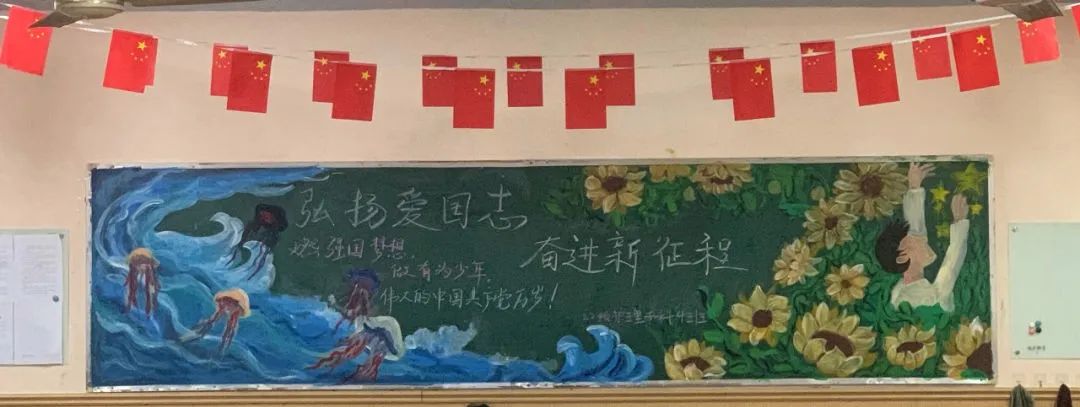 弘扬爱国志
奋进新征程
燃强国梦想，
做有为少年，
伟大的中国共产党万岁！